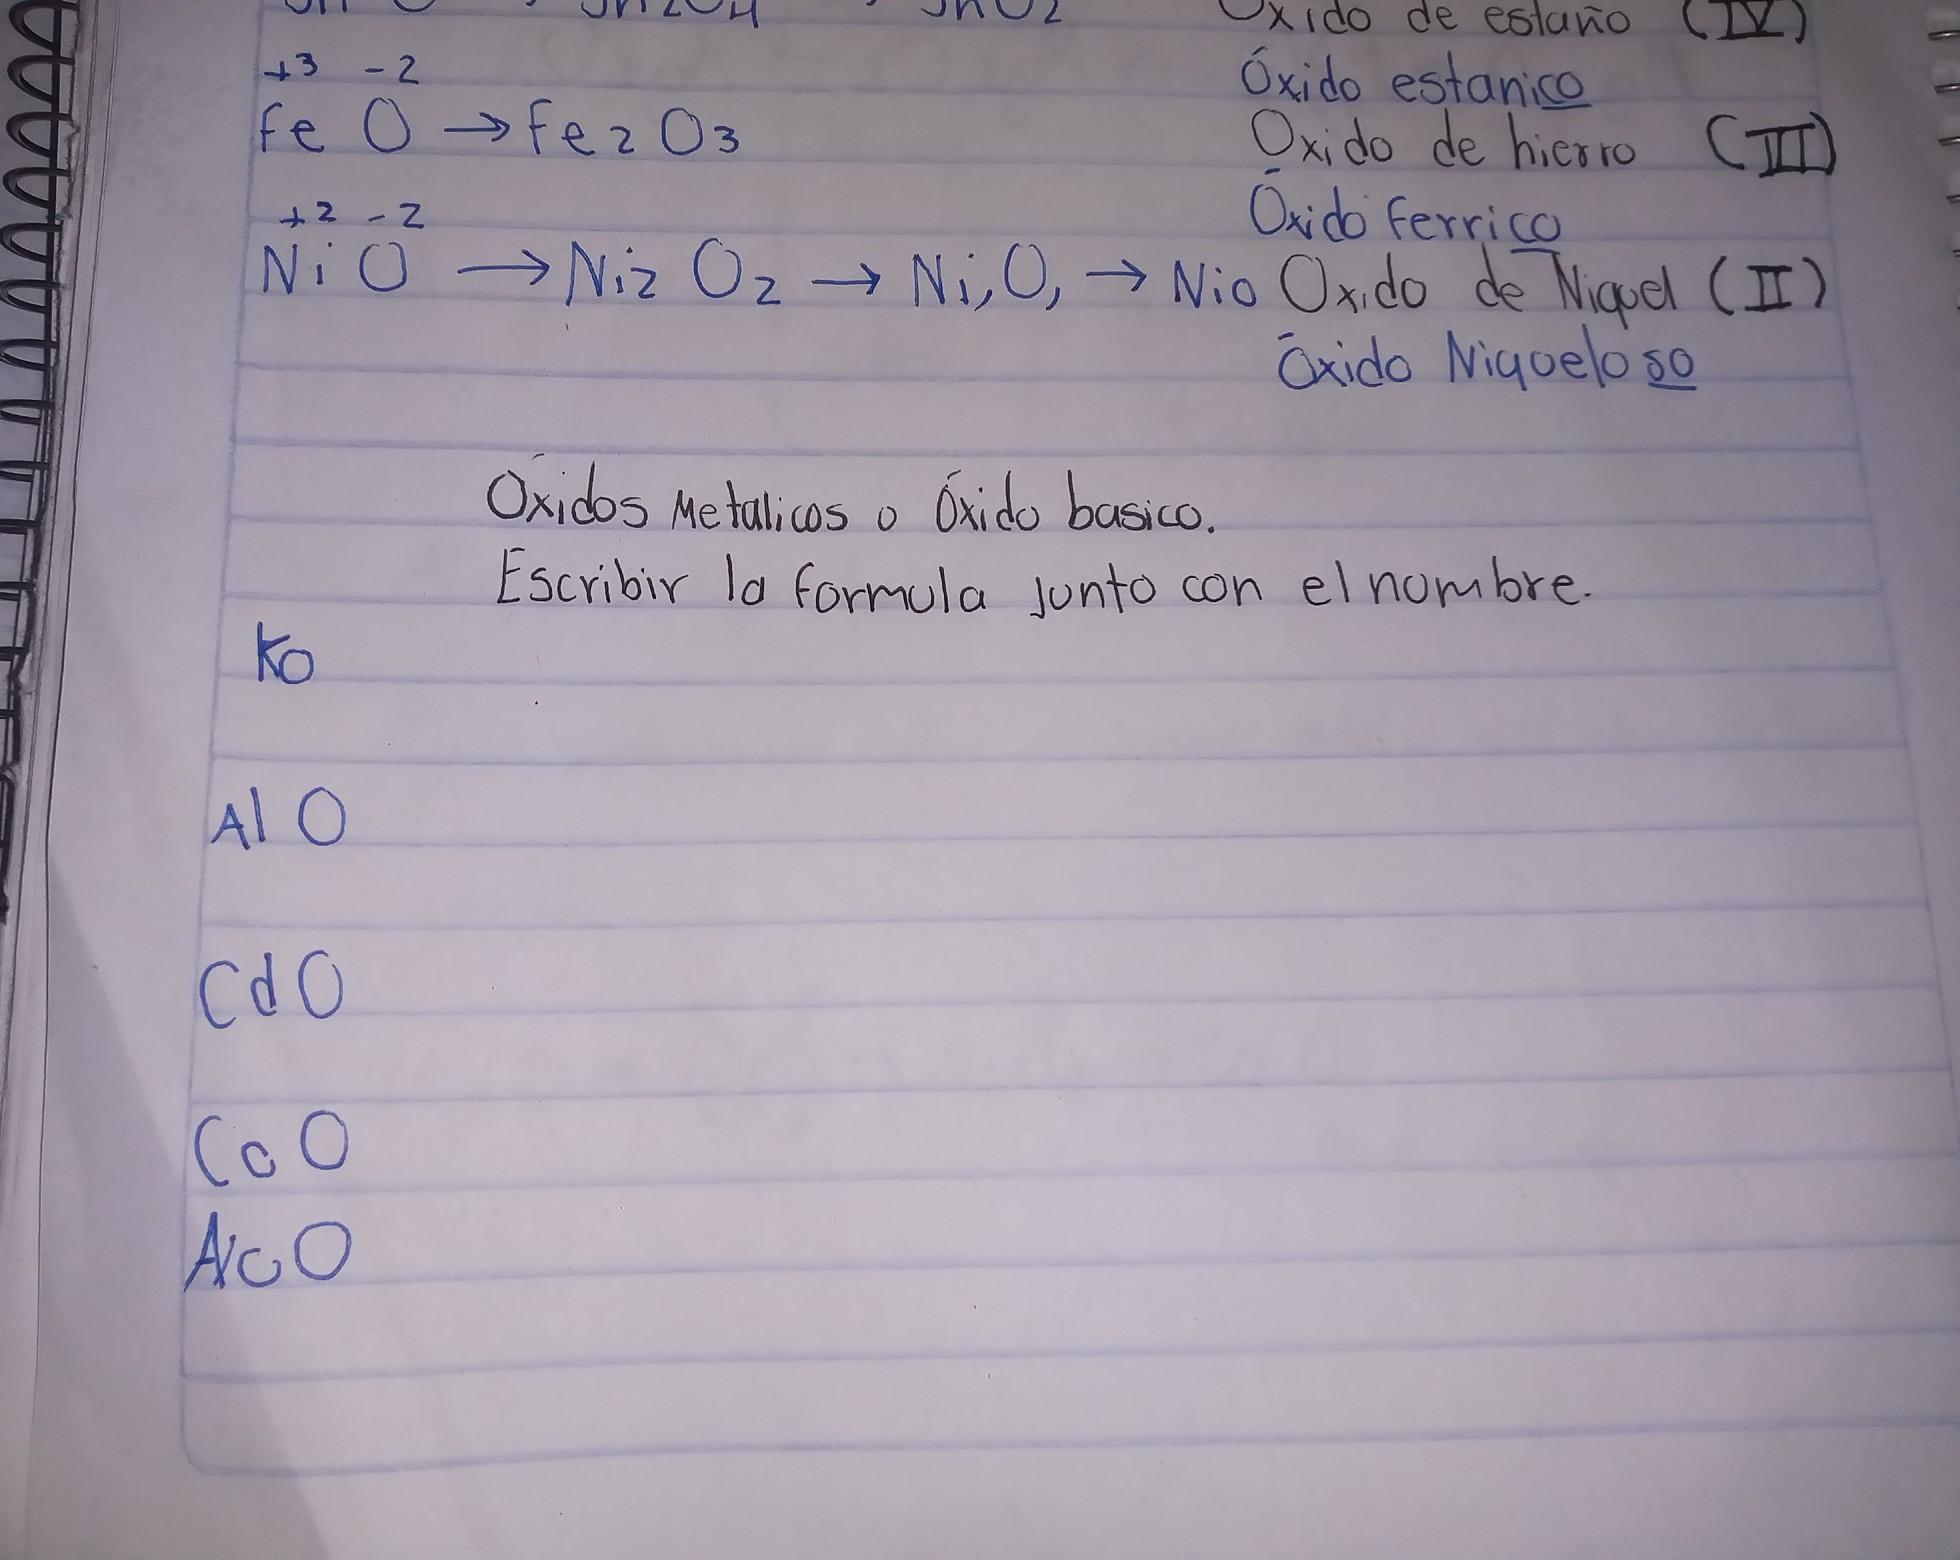 Óxido de estaño (IV)
+3 -2 Óxido estanico
Fe O → Fe2 O3 Oxido de hierro (III)
+2 -2 Óxido Ferrico
Ni O → Ni2 O2 → Ni, O, → Nio Oxido de Niquel (II)
Óxido Niqueloso
Óxidos Metalicos o Óxido basico.
Escribir la formula junto con el nombre.
KO
Al O
Cd O
O
O